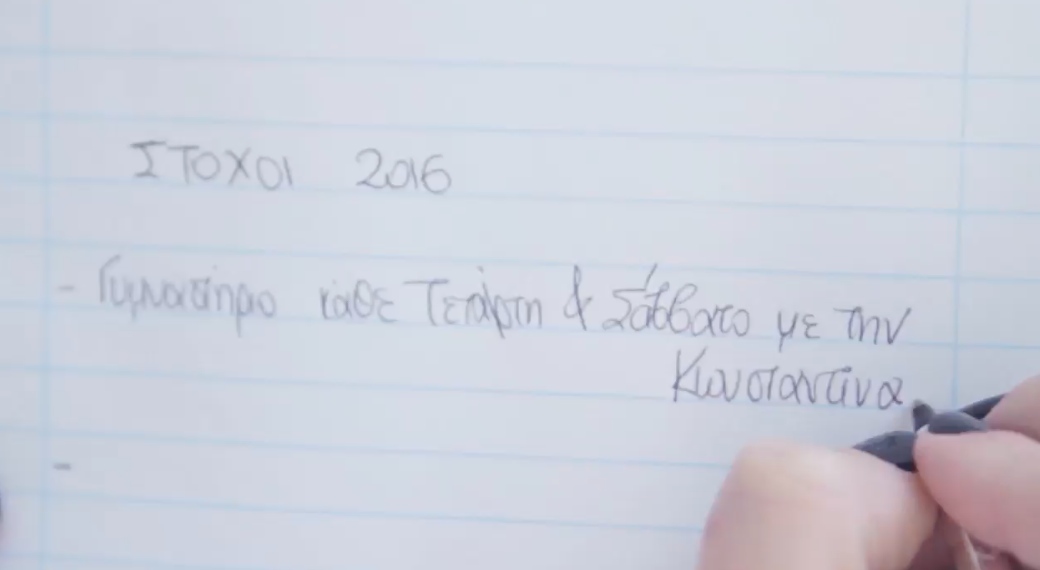 ΣΤΟΧΟΙ 2016
- Γυμναστήριο κάθε Τετάρτη & Σάββατο με την
Κωνσταντίνα
-